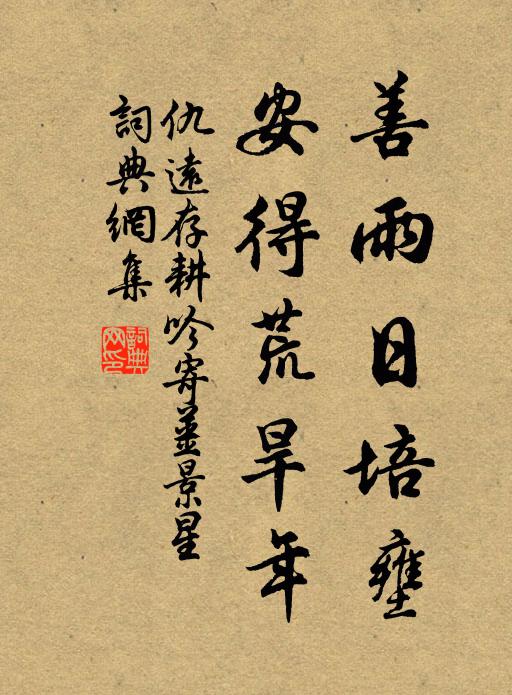 善雨日培壅
安得荒旱年
仇遠存耕吟寄薑景星
詞典網集
詞典網印